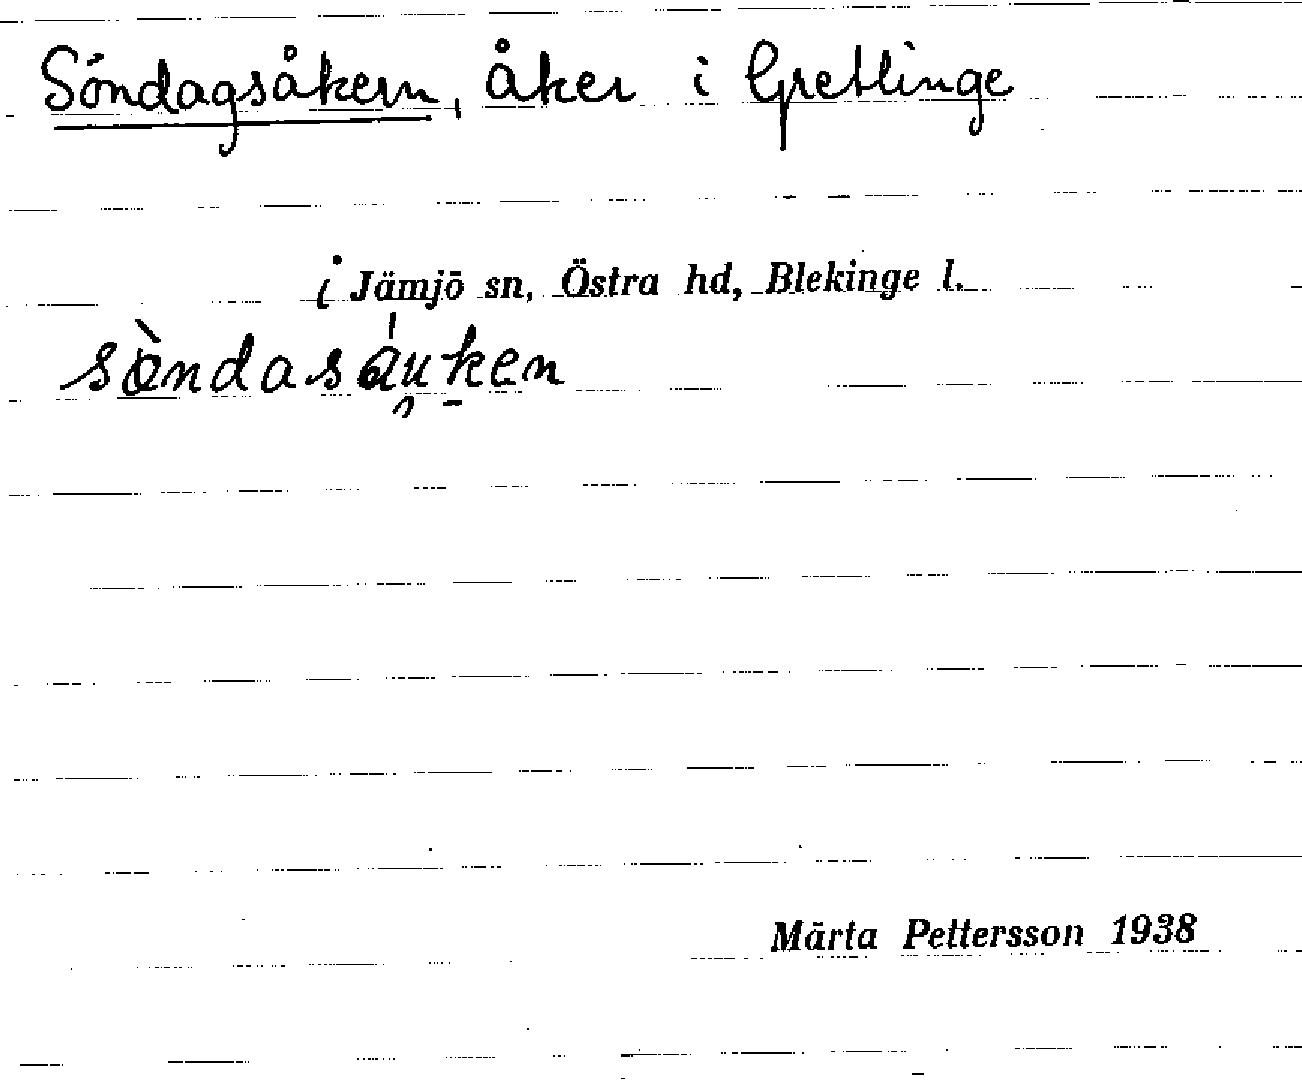 Söndagsåkern, åker i Gretlinge
i Jämjö sn, Östra hd, Blekinge l.
sòndasáuken
Märta Pettersson 1938